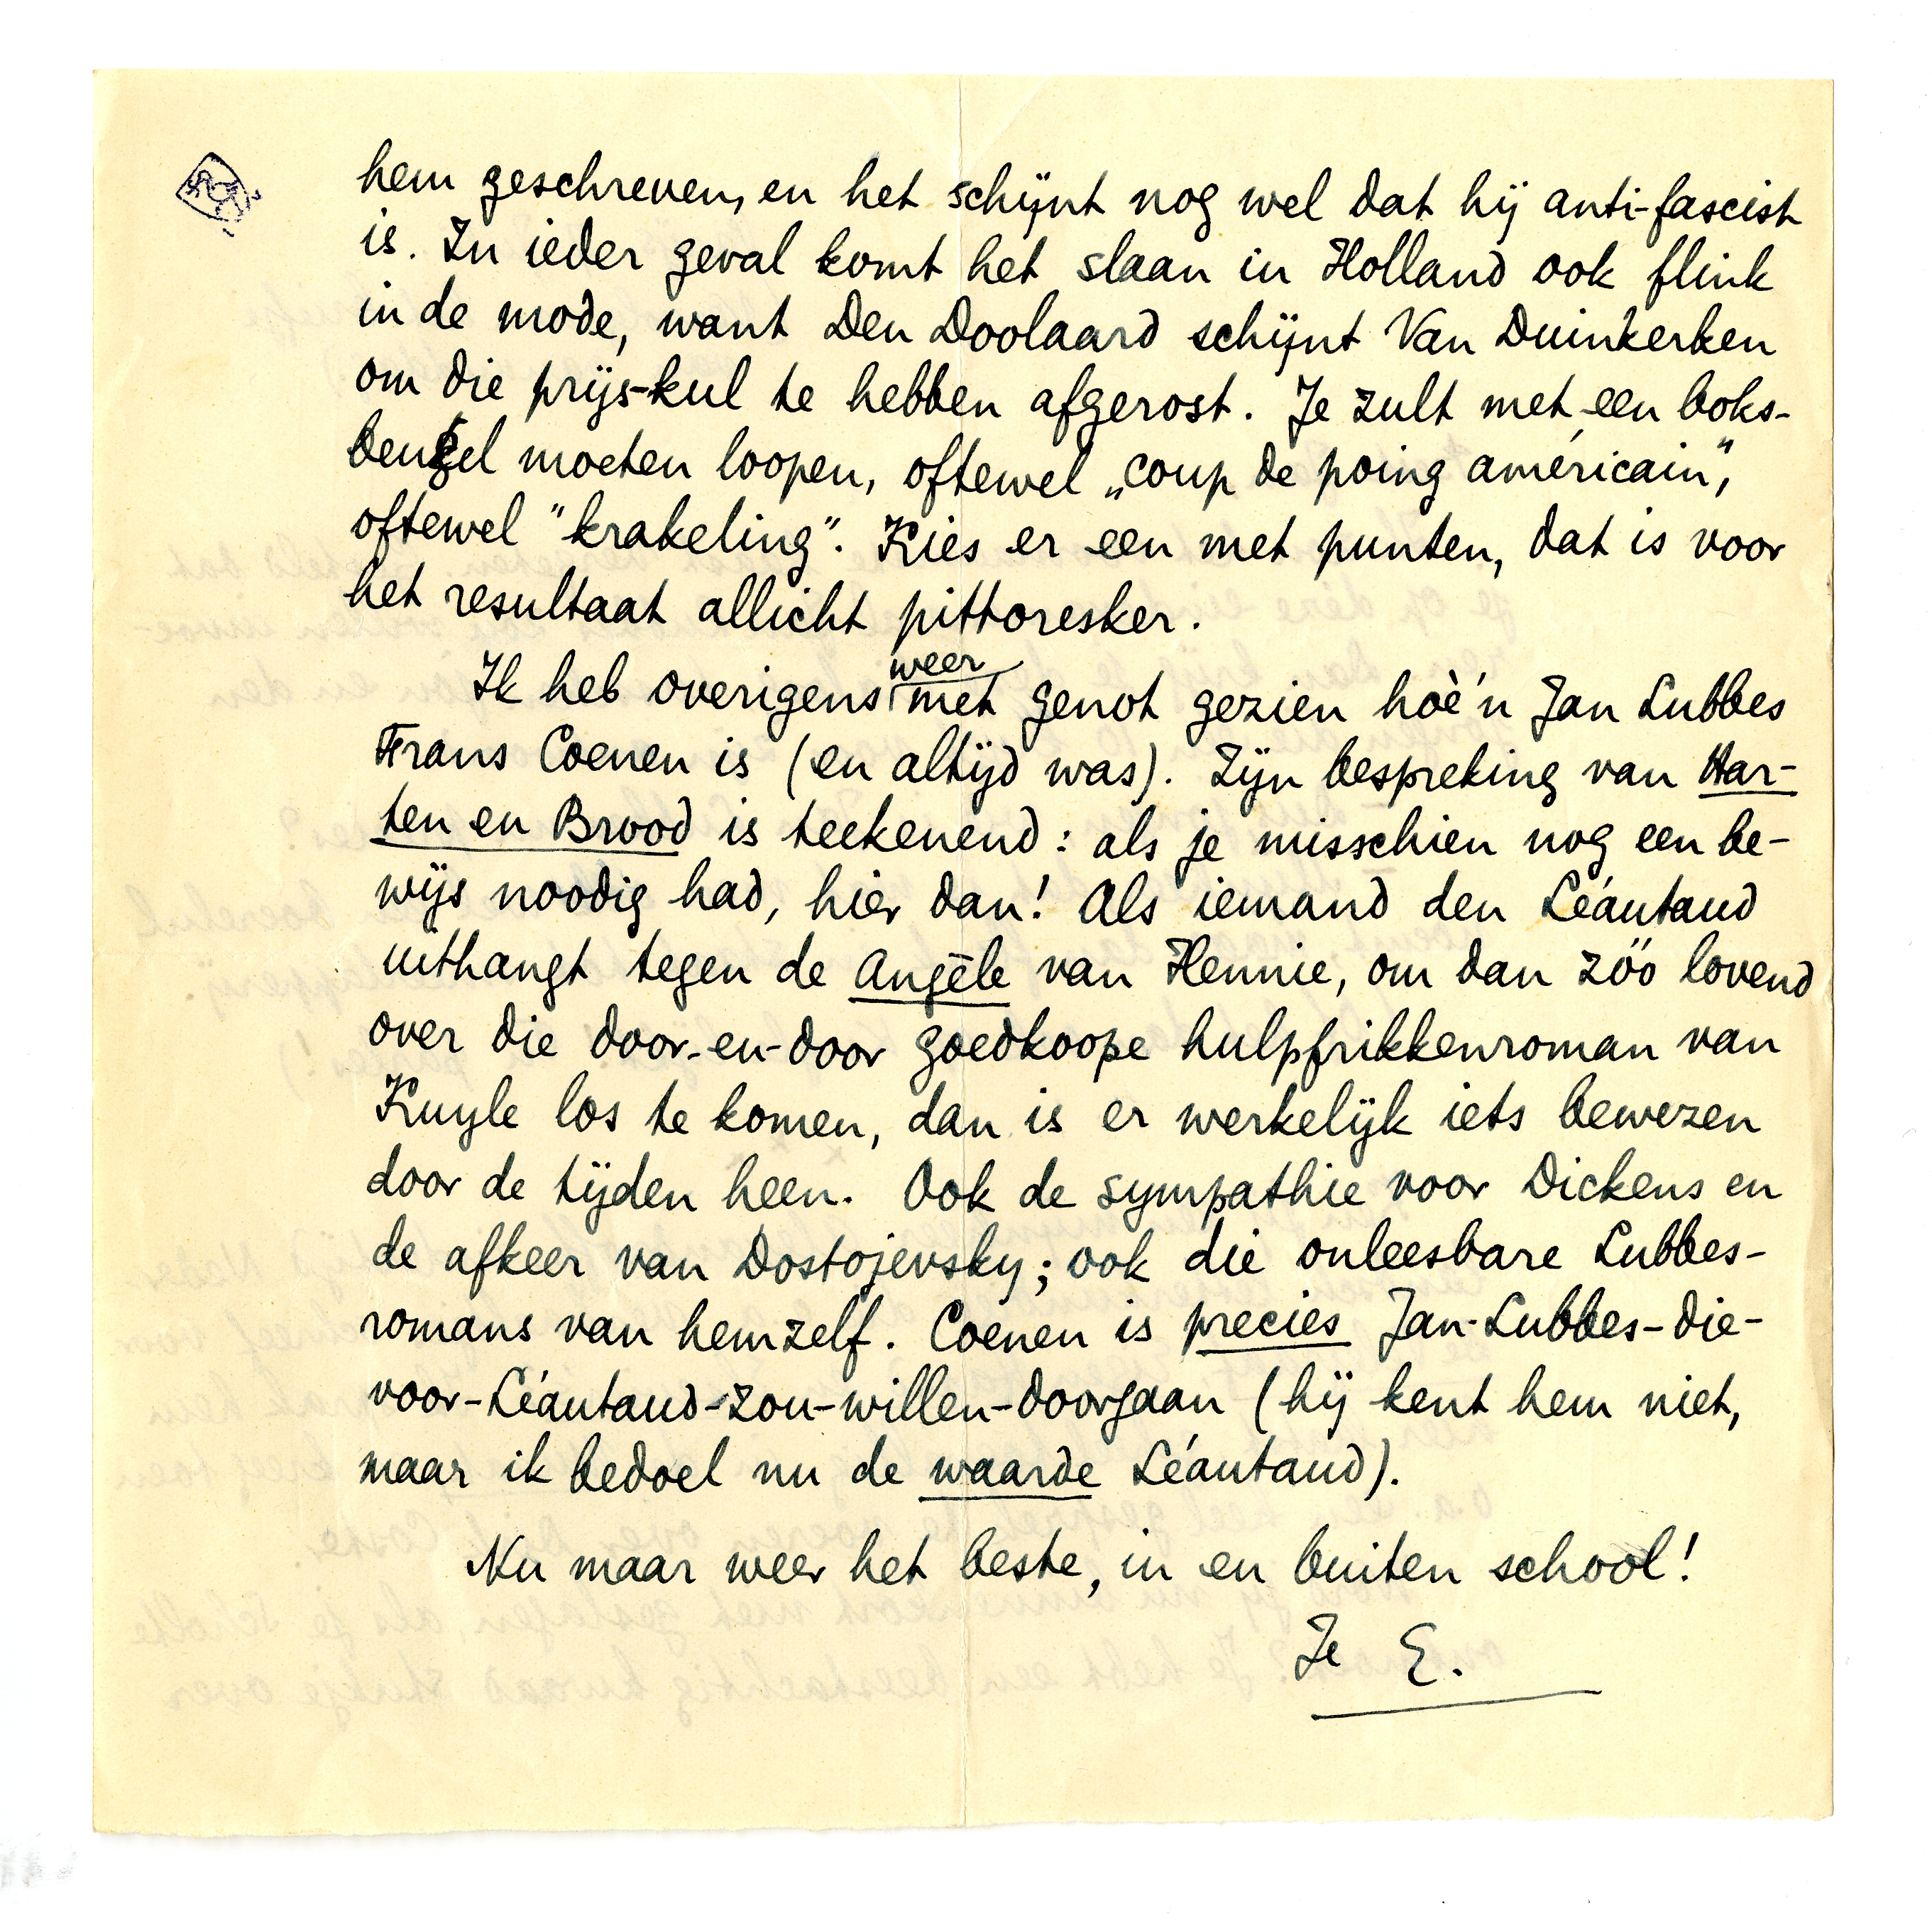 hem geschreven, en het schijnt nog wel dat hij anti-fascist
is. In ieder geval komt het slaan in Holland ook flink
in de mode, want Den Doolaard schijnt Van Duinkerken
om die prijs-kul te hebben afgerost. Je zult met een boks-
beugel moeten loopen, oftewel „coup de poing américain",
oftewel "krakeling". Kies er een met punten, dat is voor
het resultaat allicht pittoresker.
Ik heb overigens weer met genot gezien hoè'n Jan Lubbes
Frans Coenen is (en altijd was). Zijn bespreking van Har-
ten en Brood is teekenend: als je misschien nog een be-
wijs noodig had, hier dan! Als iemand den Léautaud
uithangt tegen de Angèle van Hennie, om dan zóó lovend
over die door-en-door goedkoope hulpfrikkenroman van
Kuyle los te komen, dan is er werkelijk iets bewezen
door de tijden heen. Ook de sympathie voor Dickens en
de afkeer van Dostojevsky; ook die onleesbare Lubbes-
romans van hemzelf. Coenen is precies Jan-Lubbes-die-
voor-Léautaud-zou-willen-doorgaan (hij kent hem niet,
maar ik bedoel nu de waarde Léautaud).
Nu maar weer het beste, in en buiten school!
Je E.